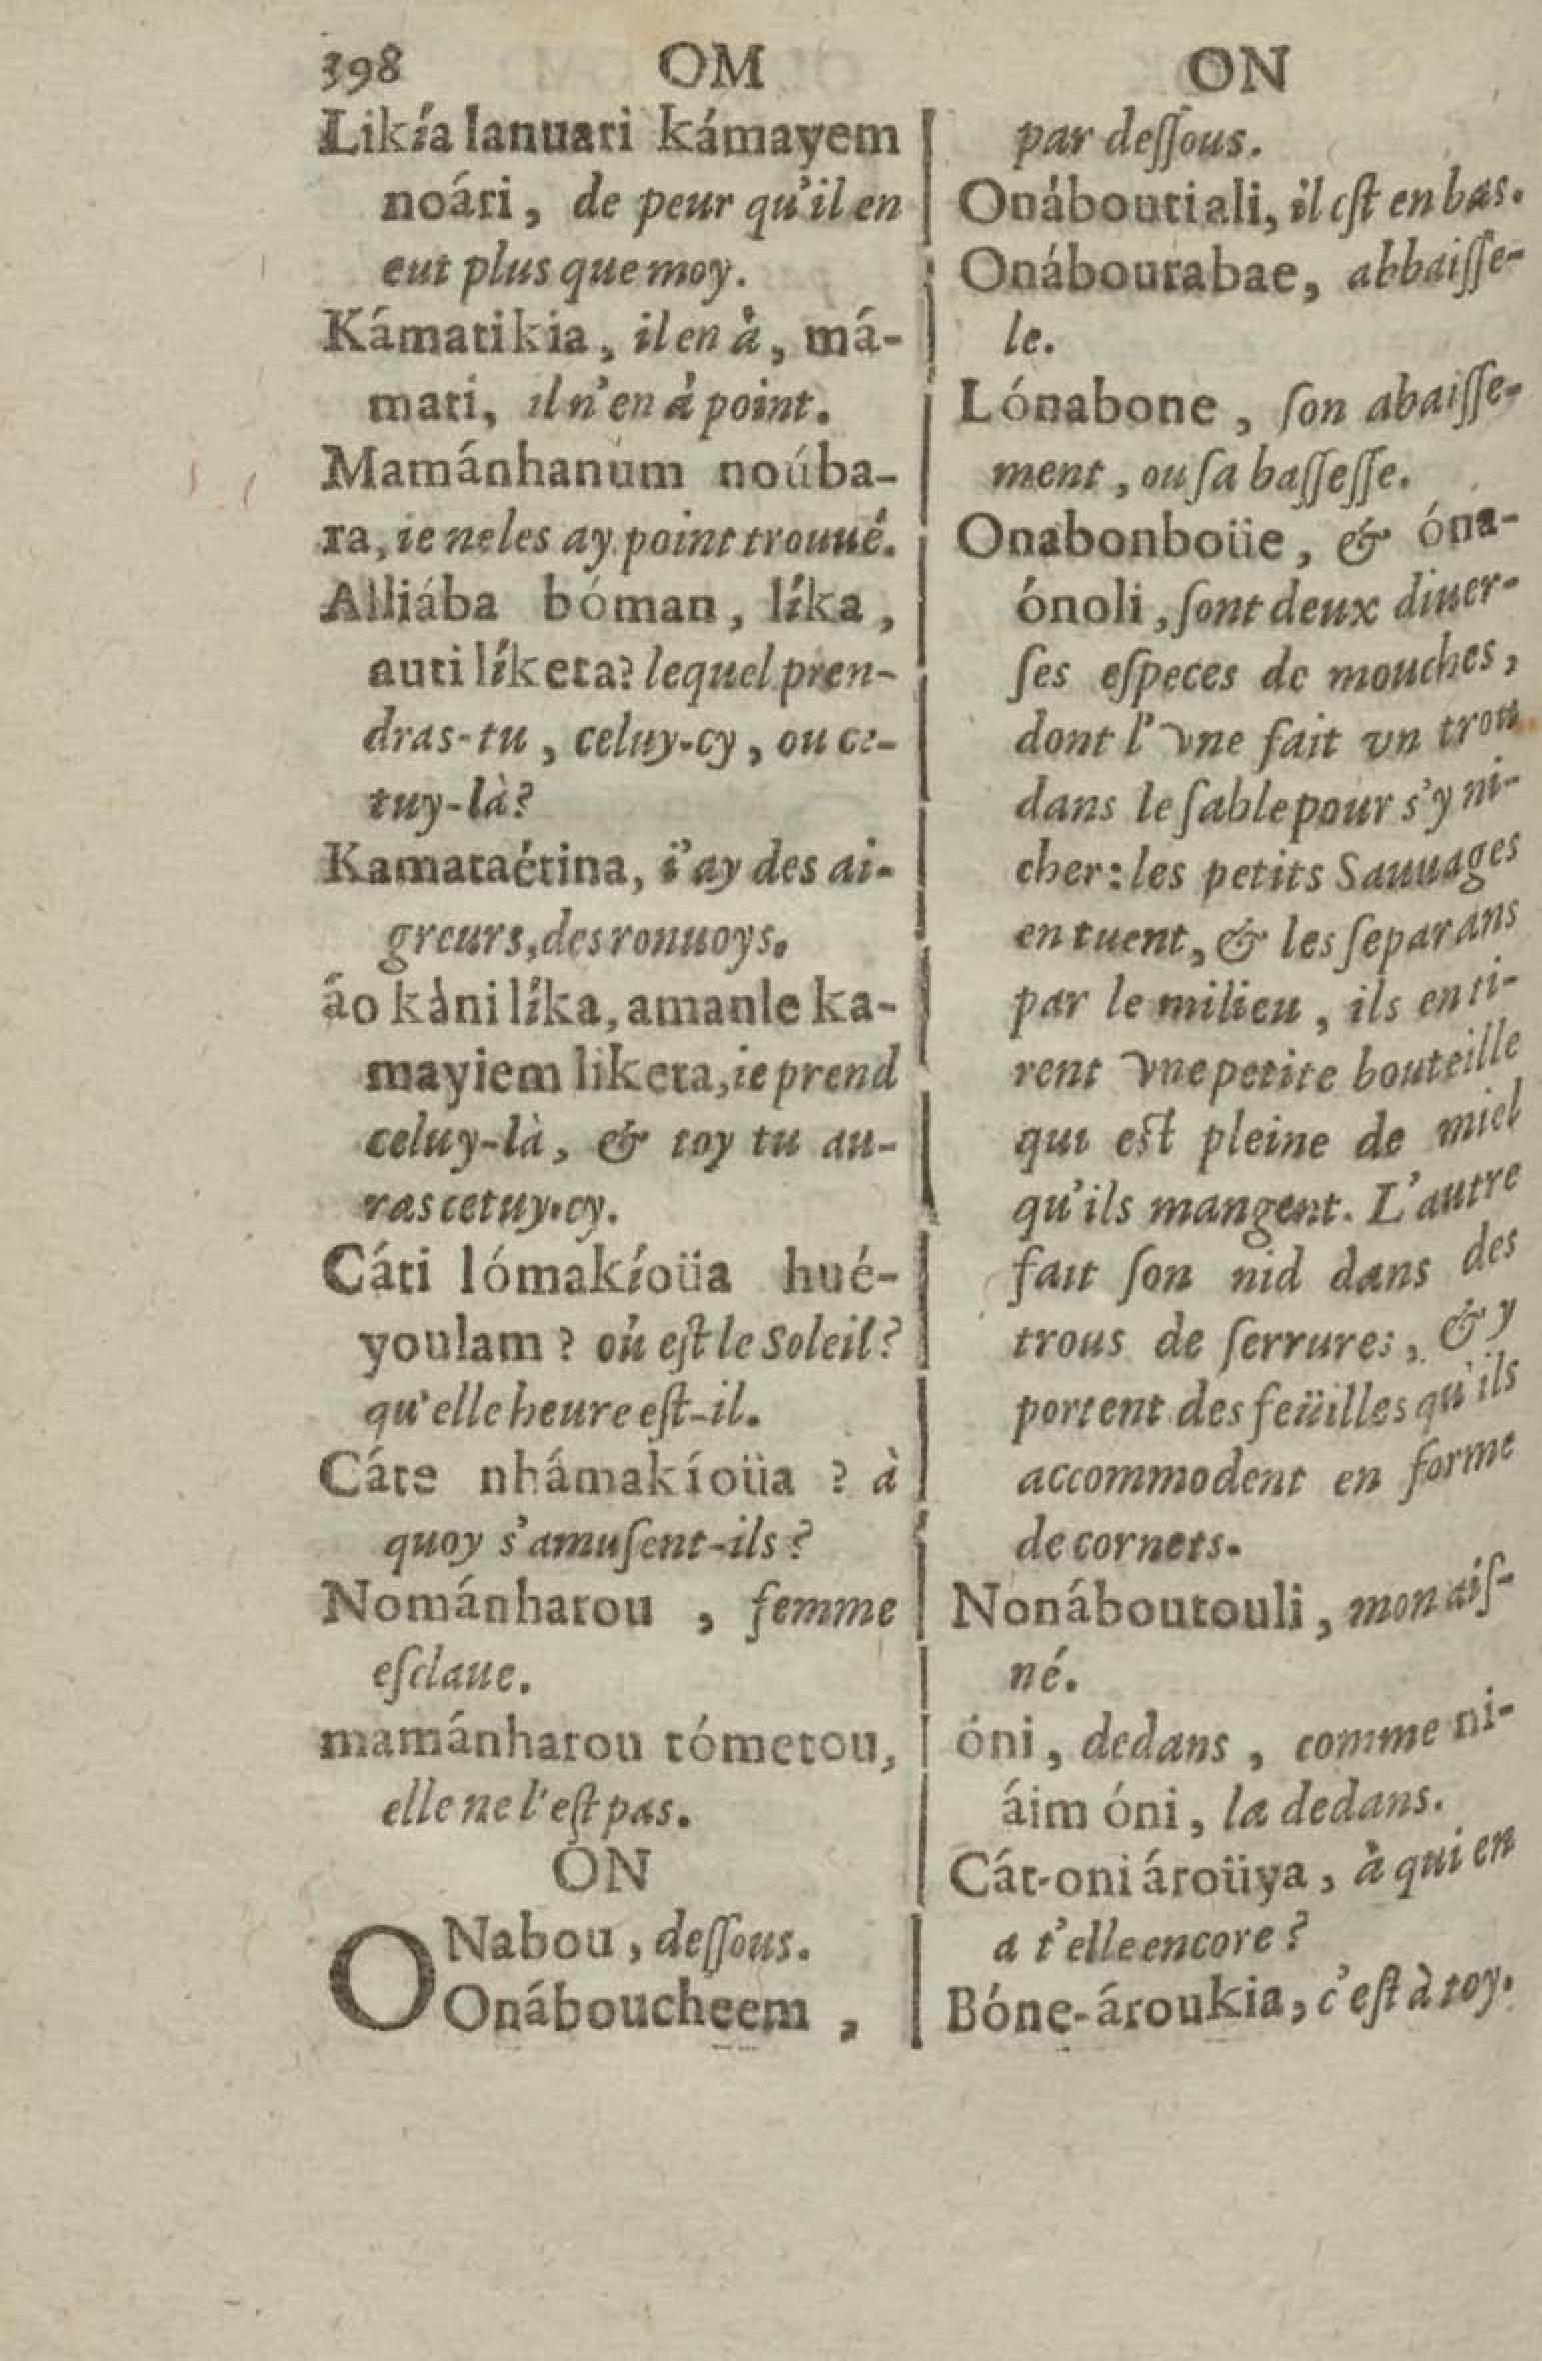 398 OM
Likía lanuari kámayem
noári, de peur qu'il en
eut plus que moy.
Kámatikia, il en à, má-
mati, il n'en à point.
Mamánhanum noúba-
ra, ie ne les ay point trouué.
Alliába bóman, líka,
auti líketa? lequel pren-
dras-tu, celuy-cy, ou ce-
tuy-là?
Kamataétina, i'ay des ai-
greurs, des ronuoys.
áo káni líka, amanle ka-
mayiem liketa, ie prend
celuy-là, & toy tu au-
ras cetuy-cy.
Cáti lómakíoüa hué-
youlam? où eſt le Soleil?
qu'elle heure eſt-il.
Cáte nhámakíoüa? à
quoy s'amuſent-ils?
Nománhatou, femme
eſclaue.
mamánhatou tómetou,
elle ne l'eſt pas.
ON
ONabou, deſſous.
Onáboucheem,
ON
par deſſous.
Onáboutiali, il eſt en bas.
Onáboutabae, abbaiſſe-
le.
Lónabone, ſon abaiſſe-
ment, ou ſa baſſeſſe.
Onabonboüe, & óna-
ónoli, ſont deux diuer-
ſes eſpeces de mouches,
dont l'vne fait vn trou
dans le ſable pour s'y ni-
cher: les petits Sauuages
en tuent, & les ſeparans
par le milieu, ils en ti-
rent vne petite bouteille
qui eſt pleine de miel
qu'ils mangent. L'autre
fait ſon nid dans des
trous de ſerrures, & y
portent des feüilles qu'ils
accommodent en forme
de cornets.
Nonáboutouli, mon aiſ-
né.
óni, dedans, comme ni-
áim óni, la dedans.
Cát-oni ároüya, à qui en
a t'elle encore?
Bóne-ároukia, c'eſt à toy.